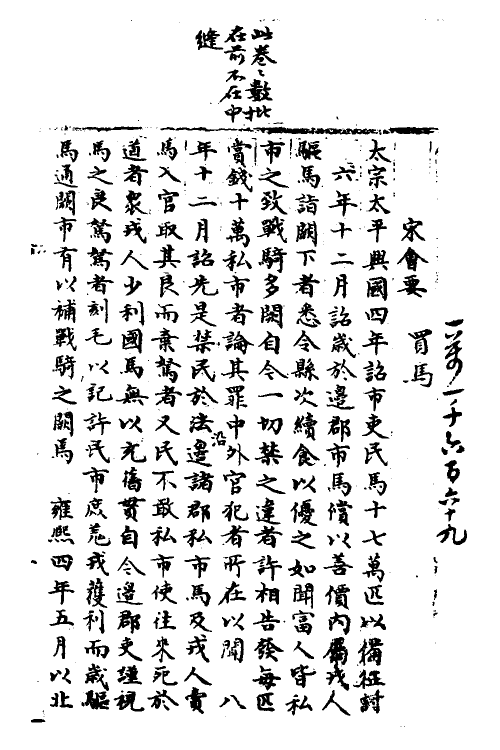 此卷之數批
在前不在中
縫
一萬一千六百六十九
宋會要
買馬
太宗太平興國四年詔市吏民馬十七萬匹以備征討
六年十二月詔歲於邊郡市馬償以善價內屬戎人
驅馬詣闕下者悉令縣次續食以優之如聞富人皆私
市之致戰騎多闕自今一切禁之違者許相告發每匹
賞錢十萬私市者論其罪中外官犯者所在以聞 八
年十二月詔先是禁民於法邊諸郡私市馬及戎人賣
沿
馬入官取其良而棄駑者又民不敢私市使往來死於
道者衆戎人少利國馬無以充舊貫自今邊郡吏謹視
馬之良駑駑者刻毛以記許民市庶羗戎獲利而歲驅
馬通關市有以補戰騎之闕馬 雍熙四年五月以北